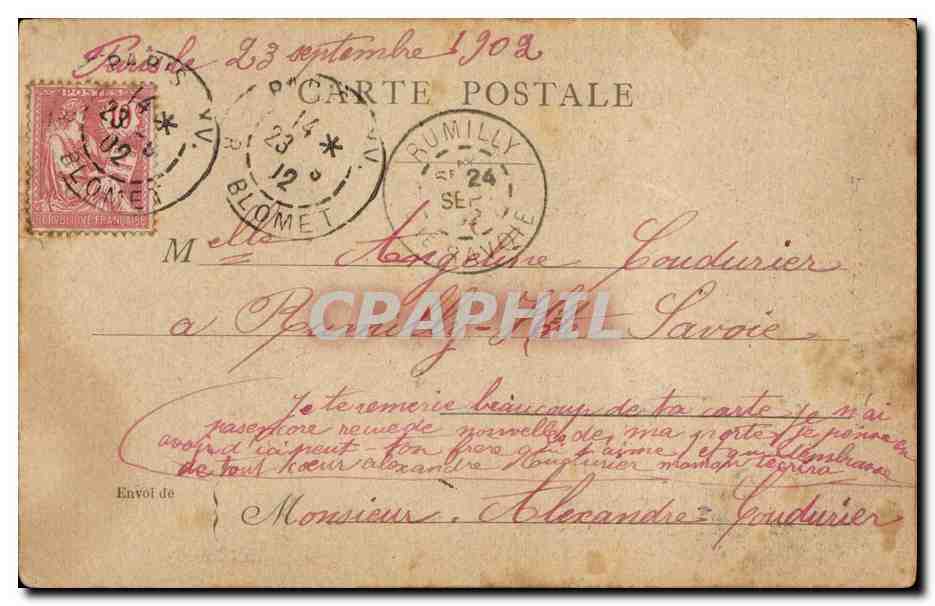 Paris le 23 septembre 1902
CARTE POSTALE
POSTES
RÉPUBLIQUE FRANÇAISE
PARIS XV.
14 *
23
02
R. BLOMET
PARIS XV.
14 *
23
12
R. BLOMET
RUMILLY
24
SEPT
HTE SAVOIE
Melle Angeline Coudurier
a Rumilly - Hte Savoie
CPARHIL
Je te remercie beaucoup de ta carte je n'ai
pas encore recue de nouvelles de ma porte je pense en
avoir d'ici peut - ton frère qui t'aime et qui t'embrasse
de tout cœur alexandre Coudurier maman t'écrira
Envoi de
Monsieur. Alexandre Coudurier